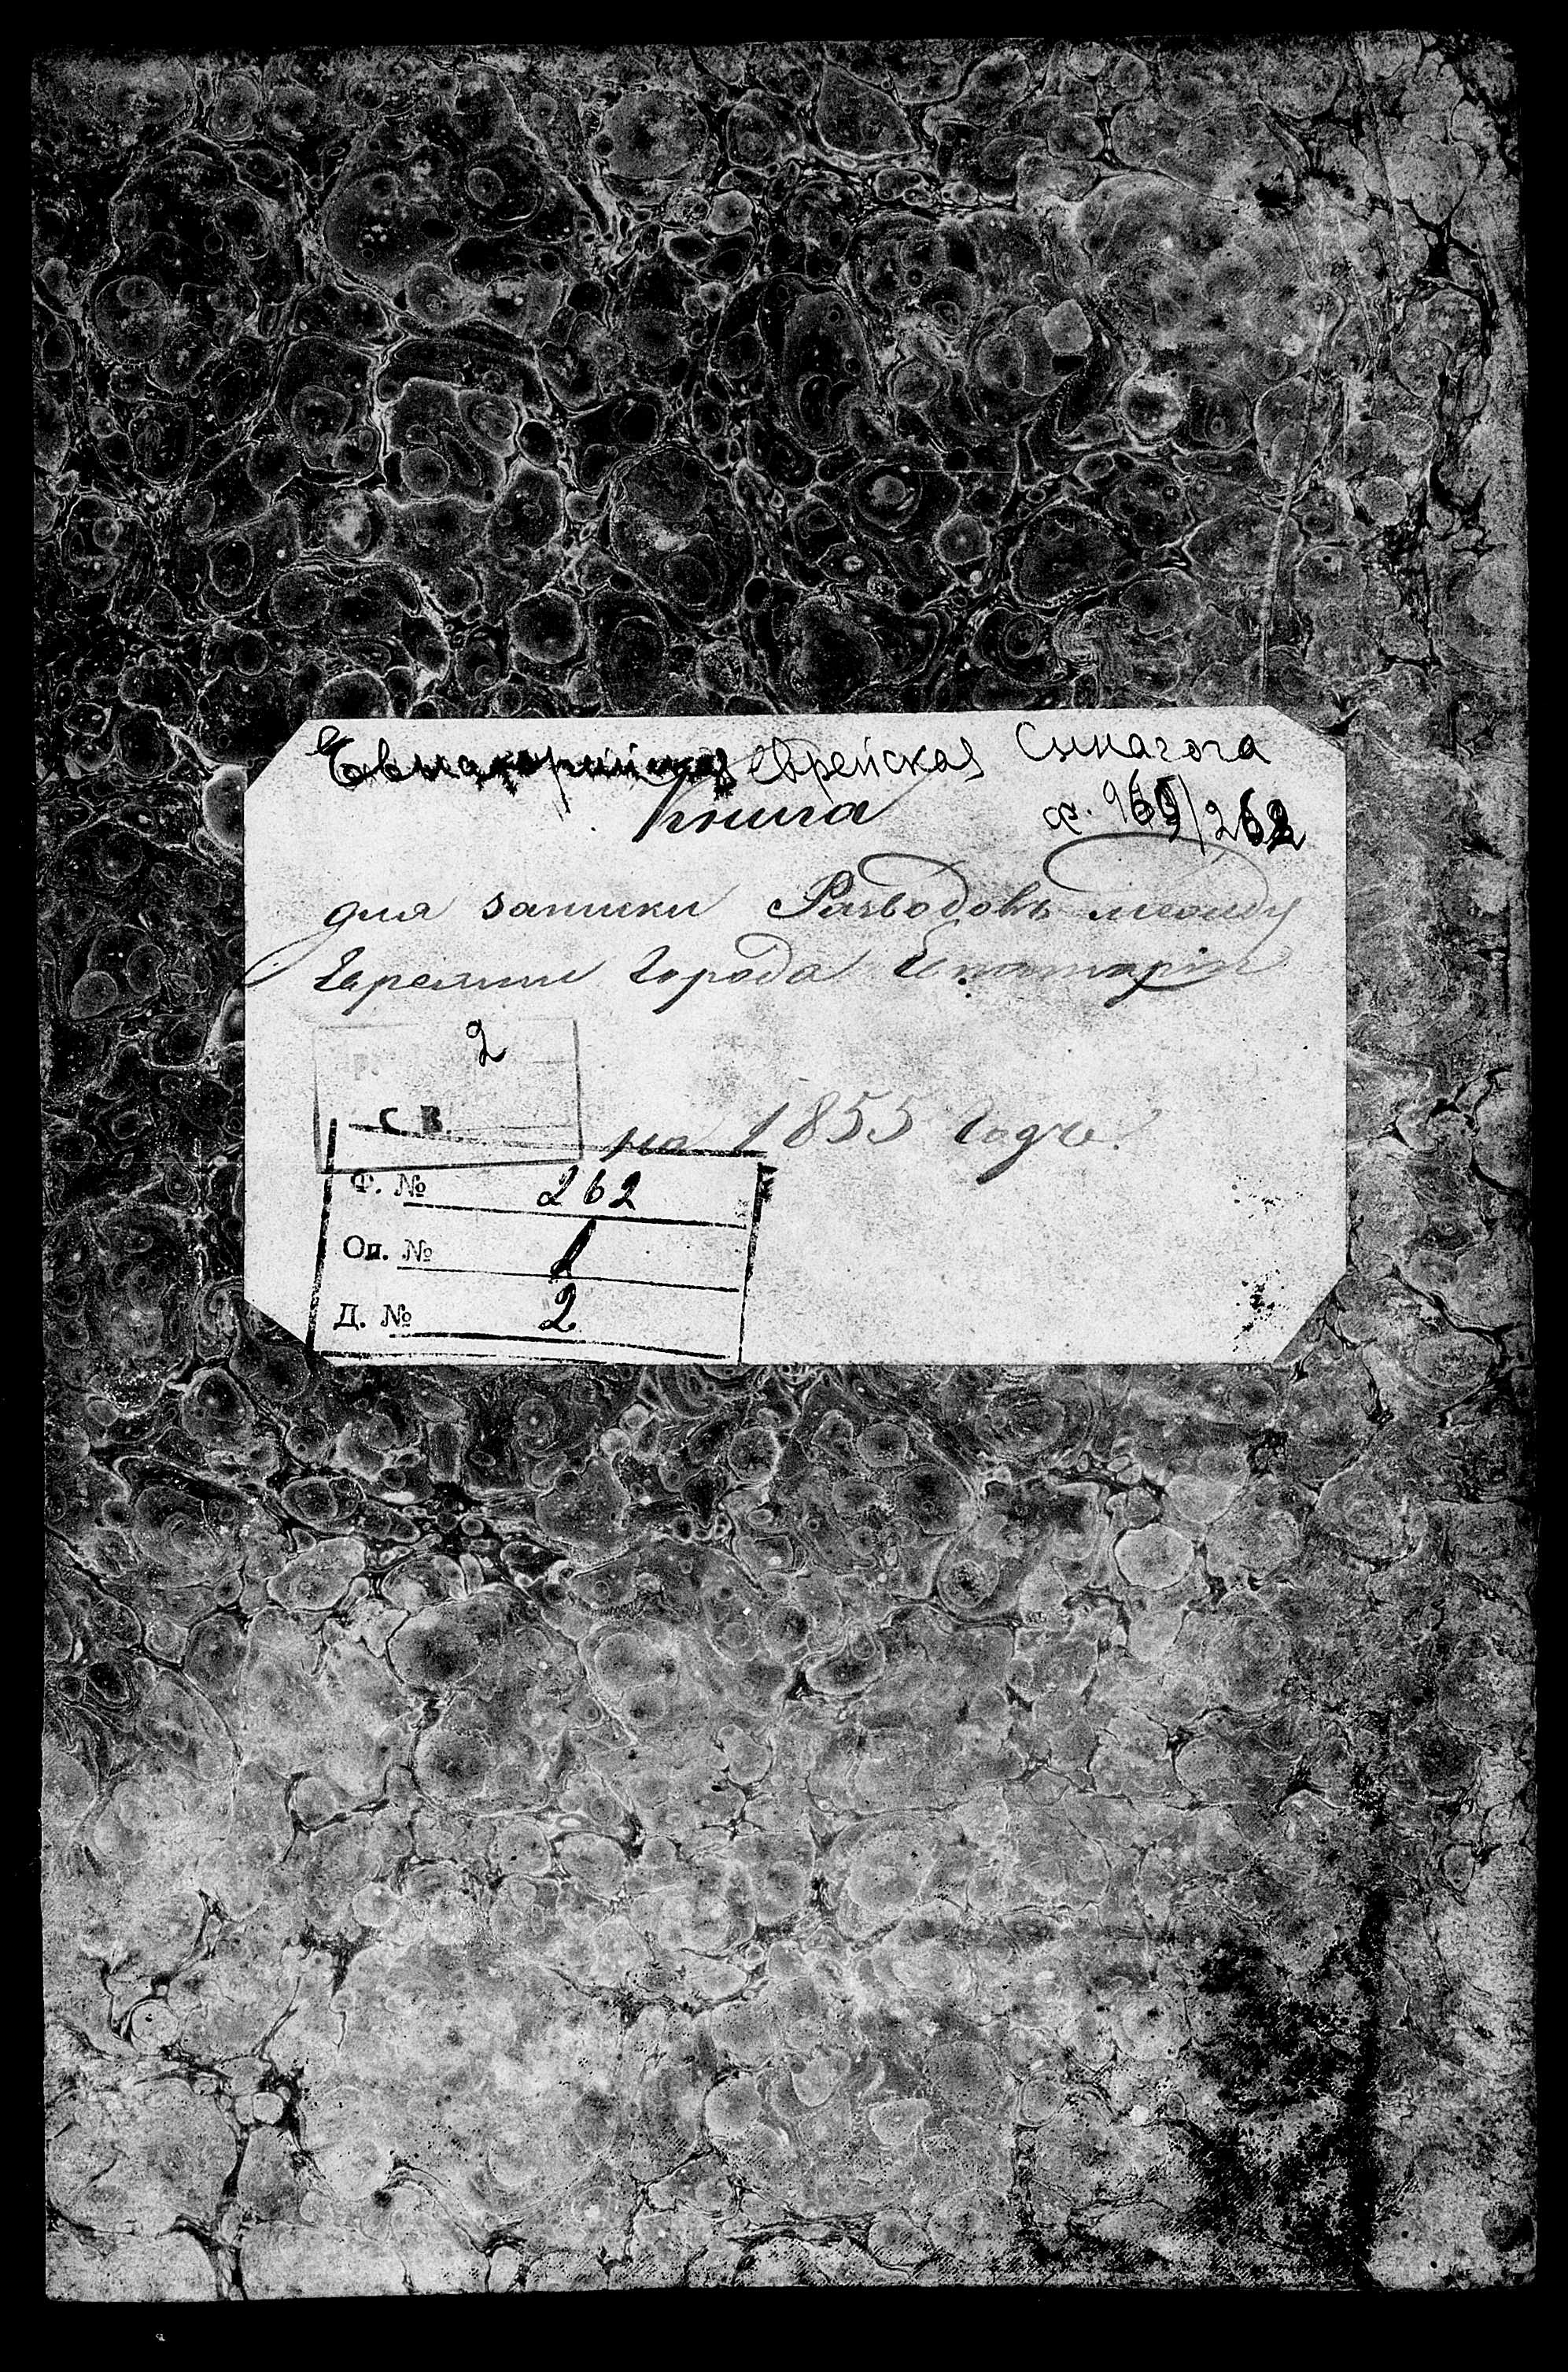 Евпаторийская еврейская Синагога
Книга
ф. 969/262
для записки Разводовъ между
Евреями Города Евпаторіи
2
С. В.
на 1855 Годъ.
Ф. № 262
Оп. № 1
Д. № 2